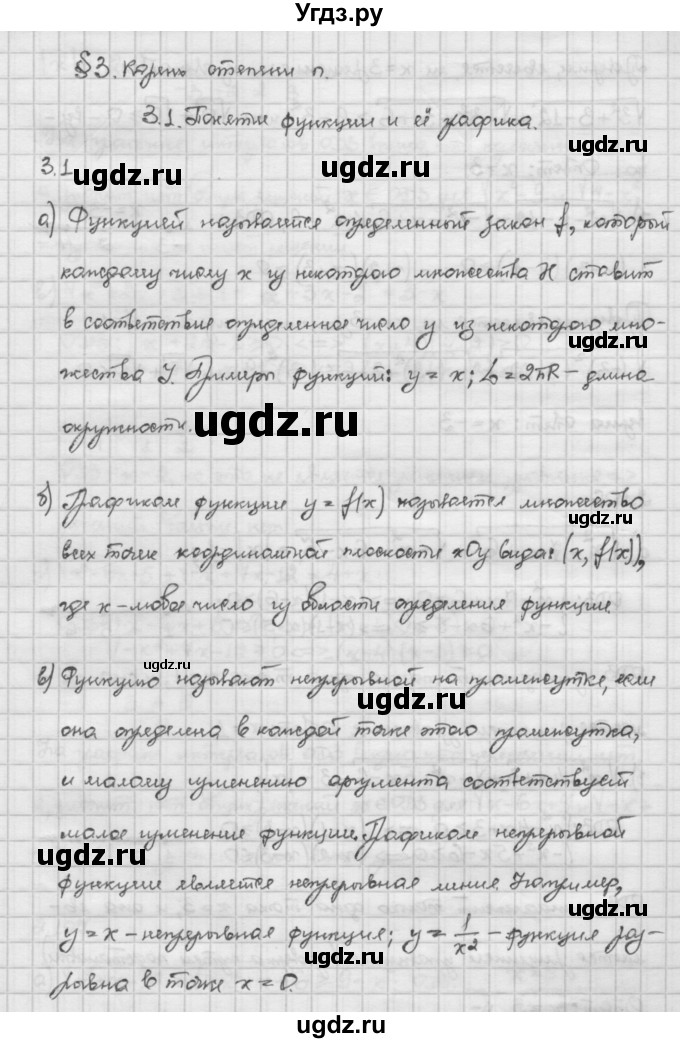 Угдз.ру
§3. Корень степени n.
3.1. Поняти функции и её графика.
3.1
ugdz.ru ugdz.ru
а) Функцией называется определенный закон f, который
каждому числу x из некоторого множества X ставит
ugdz.ru
в соответствие определенное число y из некоторого мно-
жества Y. Примеры функций: y = x; L = 2πR – длина
окружности. ugdz.ru ugdz.ru
б) Графиком функции y = f(x) называется множество
всех точек координатной плоскости xOy вида: (x, f(x)),
где x – любое число из области определения функции.
ugdz.ru
в) Функцию называют непрерывной на промежутке, если
ugdz.ru
она определена в каждой точке этого промежутка,
ugdz.ru
и малому изменению аргумента соответствует
малое изменение функции. Графиком непрерывной
ugdz.ru
функции является непрерывная линия. Например,
ugdz.ru
y = x – непрерывная функция; y = 1/x² – функция раз-
рывна в точке x = 0.
ugdz.ru